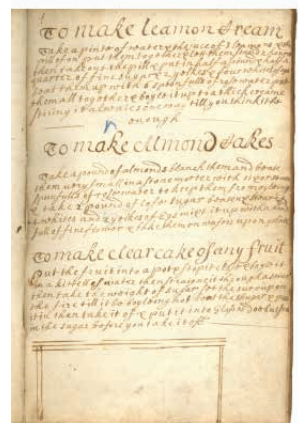 To make Leamon Cream
Take a pinte of water & the juce of 3 Leamons & the
pill of on put them together & let them
then take out the pille put in half a pound & half a
quarter of fine sugar & 2 yolkes & four whites of eggs
beat them up with a spunfull of rosewater put
them all together & boyle it up to a thick creame
stiring it allwaies one way till you think it be
enough
To make Almond Cakes
Take a pound of almonds blanch them and beate
them very small in a stone morter with
spunfulls of rosewater to keep them from oyling
& take a pound of lofe sugar beaten &
whites and 2 yolkes of Eggs mix it up with
full of fine flower & then on wafers upon plates
To make clear cake of any fruit
Put the fruit into a pot & stop it close & boyle it
in a kittell of water then straine it through a
then take the weight of sugar for the surrop
the fire till it be boyling hot beat the sugar & put
it in then take it of & put it into glasses
in the sugar before you take it of